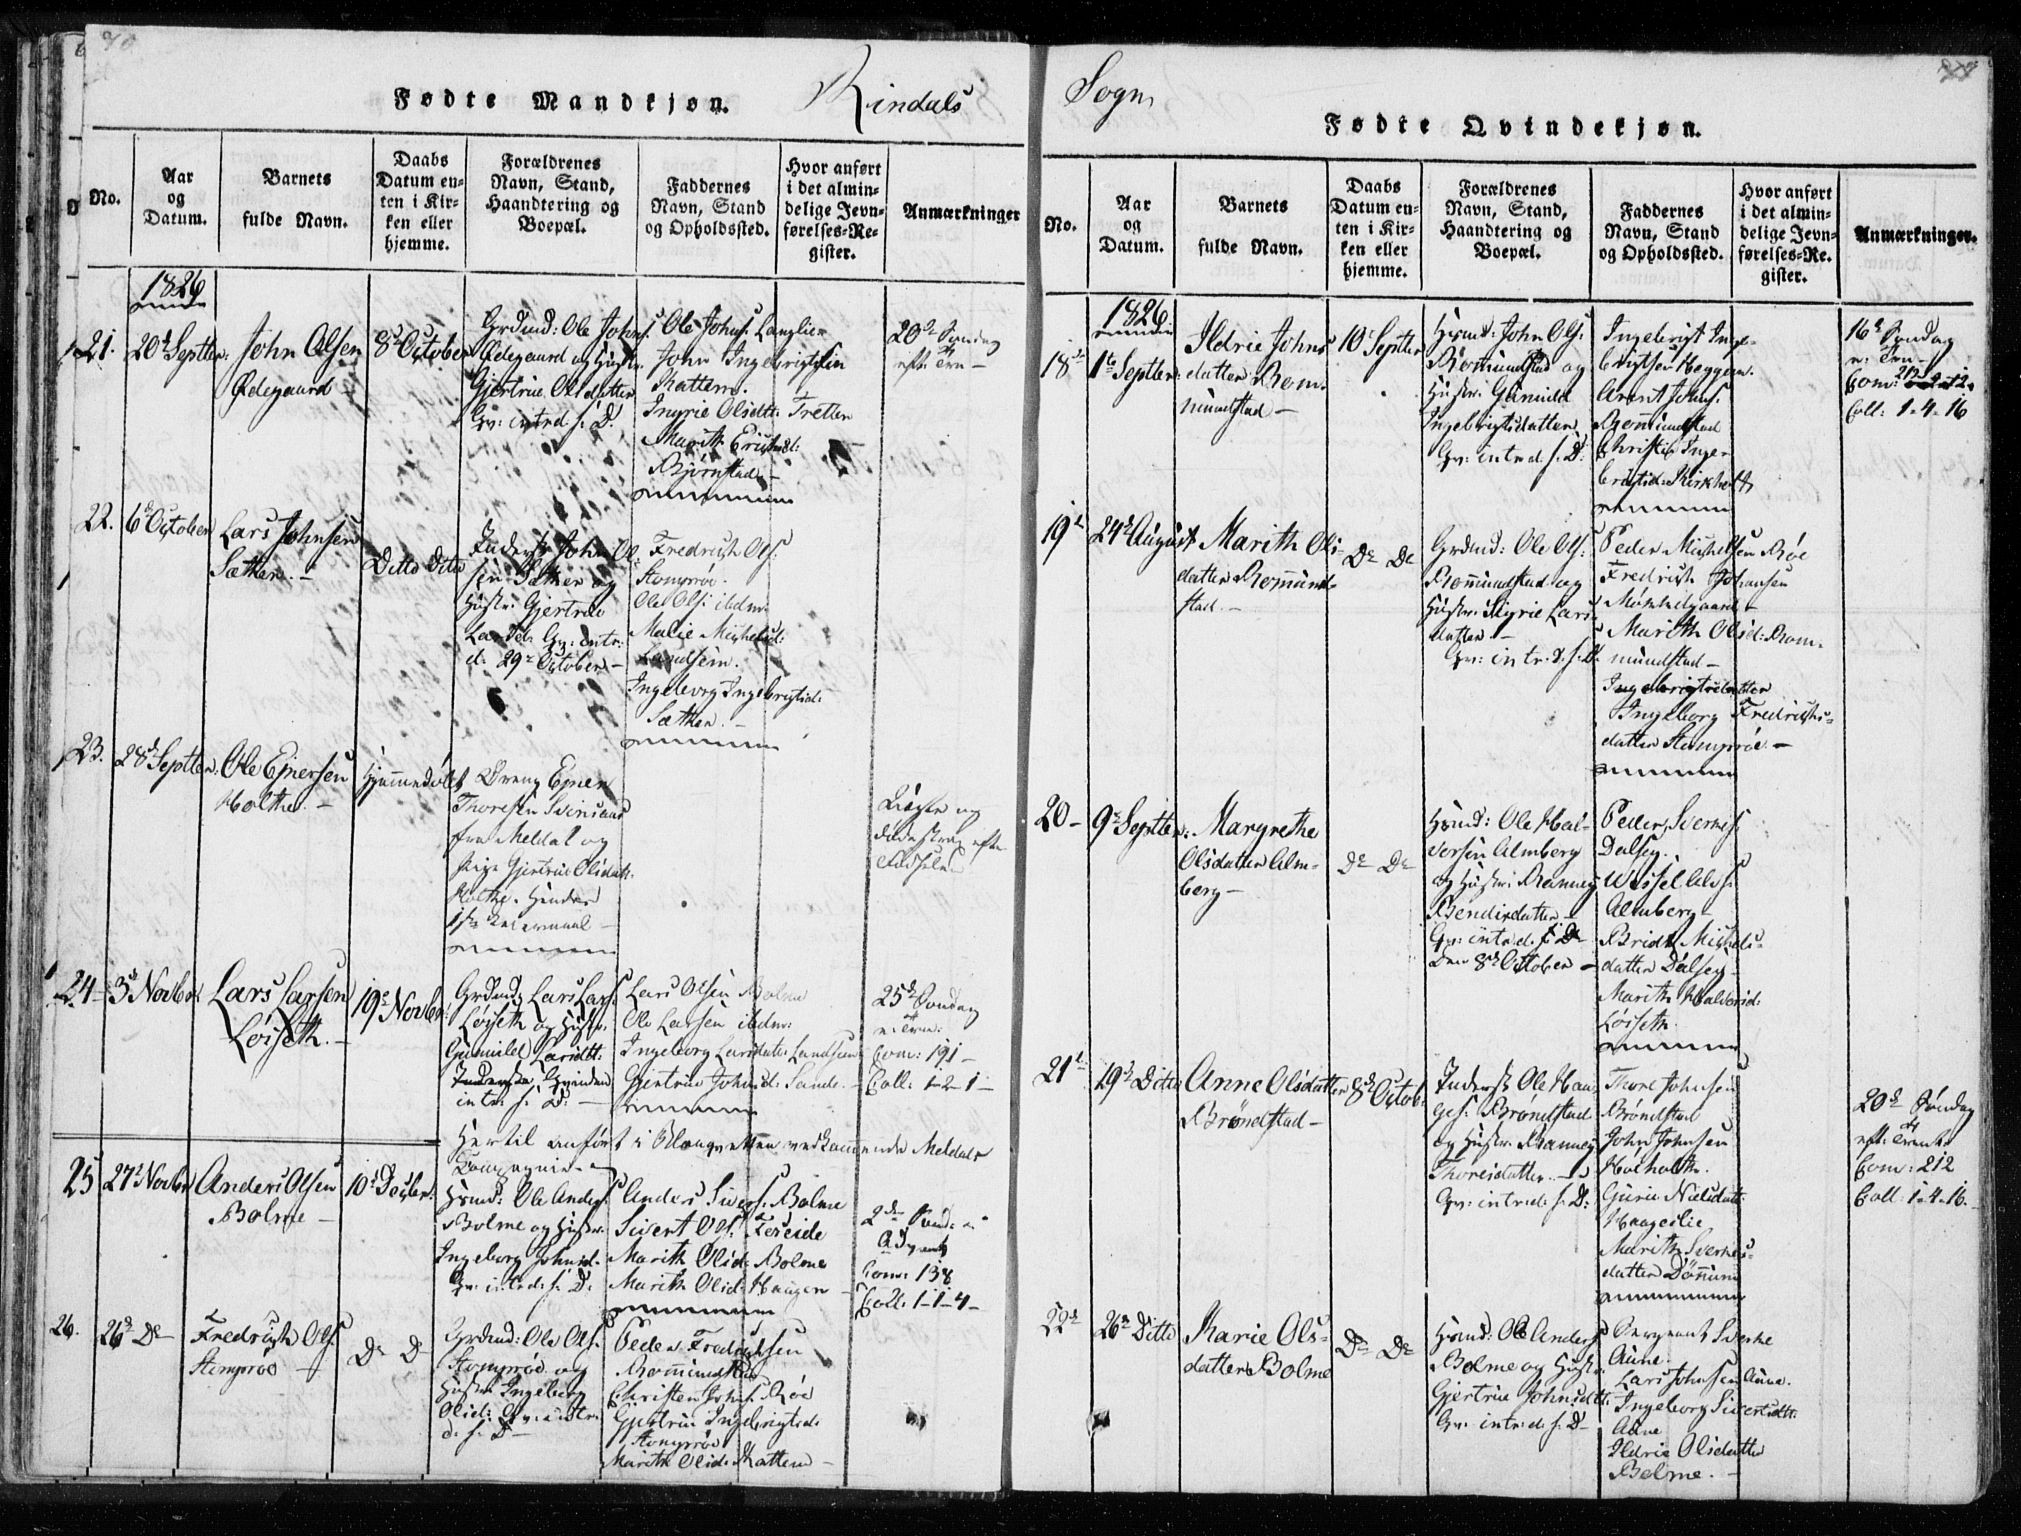 70
Fødte Mandkjøn.
Rindals
No.
Aar
og
Datum.
Barnets
fulde Navn.
Daabs
Datum en-
ten i Kir-
ken eller
hjemme.
Forældrenes
Navn, Stand,
Haandtering og
Boepæl.
Faddernes
Navn, Stand
og Opholdssted.
Hvor anført
i det almin-
delige Jevn-
førelses-Re-
gister.
Anmærkninger
1826
21.
20d Septbr.
John Olsen
Ødegaard
8d October
Grdmd: Ole Johns:
Ødegaard og Hustr.
Gjertrue Olsdatter
Qv: introd. s: D.
Ole Johns: Langlie
John Ingebrigtsen
Kattem.
Ingrie Olsdtr: Tretten
Marith Erichsd:
Bjørnstad
20d Søndag
eft: Trn
22.
6d October
Lars Johnsen
Sæther.
Ditto Ditto
Inderst John Ol-
sen Sæther og
Hustr: Gjertrud
Larsd: Qv: intr:
d: 29d October
Fredrich Ols:
Stomprøe.
Ole Ols: ibdm
Malie Michelsd:
Landsem.
Ingeborg Ingebrigtsd:
Sæther.
23.
28d Septbr.
Ole Ejnersen
Holthe.
Hjemmedøbt
Dreng Ejner
Thoresen
fra Meldal og
Pige Gjertrue Olsdatr:
Holthe. Hendes
1ste Leiermaal
24
3d Novbr
Lars Larsen
Løiseth.
19d Novbr.
Grdmd: Lars Lars:
Løiseth og Hustr.
Gunnild Larsdtr:
Qvinden
intr: s: D:
Lars Olsen Bolme
Ole Larsen ibdm:
Ingeborg Larsdatr Landsem
Gjertrue Johnsd: Sande
25d Søndag
n: Trn:
Com: 191
Coll: 1-2-1
Hertil anført i Blanqvetten vedkommende Meldals
Compagnie
25
27d Novbr
Anders Olsen
Bolme
10d Decbr:
Hsmd: Ole Anders:
Bolme og Hustr.
Ingeborg Johnsd.
Qv: introd: s: D:
Anders Sivers: Bolme
Sivert Ols: Foseide
Marith Olsd: Bolme
Marith Olsd: Haagen
2den Sønd: i
Advent
Com: 138
Coll: 1-1-4
26.
26d Do
Fredrich Ols:
Stomprøe
Do Do
Grdmd: Ole Ols:
Stomprøe og
Hustr Ingeborg
Olsd: Qv: intr:
d: s: D
Peder Fredrichsen
Romundstad
Christen Johns: Røe
Gjertrue Ingebrigtsd:
Stomprøe
Marith Olsd: Kattem
Sogn
Fødte Qvindekjøn.
No.
Aar
og
Datum.
Barnets
fulde Navn.
Daabs
Datum en-
ten i Kir-
ken eller
hjemme.
Forældrenes
Navn, Stand,
Haandtering og
Boepæl.
Faddernes
Navn, Stand
og Opholdssted.
Hvor anført
i det almin-
delige Jevn-
førelses-Re-
gister.
Anmærkninger.
1826
18d
1ste Septbr:
Ildrie Johns
datter Rom-
mundstad
10d Septbr
Hsmd: John Ols:
Romundstad og
Hustr: Gunild
Ingebrigtsdatter
Qv: introd. s: D:
Ingebrigt Inge-
brigtsen Heggem.
Arent Johns:
Romundstad
Christie Inge-
brigtsd: Kirkholt
16d Søndag
n: Trn
Com:
Coll: 1-4-16
19d
24d August
Marith Ols-
datter Romund-
stad.
Do Do
Grdmd: Ole Ols:
Romundstad og
Hustr: Sigrie Lars-
datter
Qv: intr. d. s: D:
Peder Michelsen Røe
Fredrich Johansen
Marith Olsd: Rom-
mundstad
Ingeborg Fredrichs-
datter Stomprøe
20
9d Septbr.
Margrethe
Olsdatter Alm-
berg
Do Do
Hsmd: Ole Hal-
vorsen Almberg
og Hustr: Ranney
Bendixdatter
Qv: introd. s: D
Den 8d October
Peder Sverkes:
Dalseg.
Almberg
Bridt Michels-
datter Dalseg
Marith Halvorsd:
Løiseth.
21d
19d Ditto
Anne Olsdatter
Brøndstad
8d Octob:
Inderst Ole Haa-
ges: Brøndstad
og Hustr: Ranney
Thoresdatter
Qv: introd: s: D:
Thore Johnsen
Brøndstad
John Johnsen
Holholthe.
Gurie Nielsdatr
Haagenlie
Marith Sverkes-
datter Dønnum
20d Søndag
eft: Trn
Com: 212
Coll: 1-4-16.
22d
26d Ditto
Marie Ols-
datter Bolme
Do Do
Hsmd: Ole Anders:
Bolme og Hustr
Gjertrue Johnsdtr:
Qv: introd. s: D
Sergeant Sverke
Aune.
Lars Johnsen Aune.
Ingeborg Sivertsdtr:
Aune
Ildrie Olsdatter
Bolme.